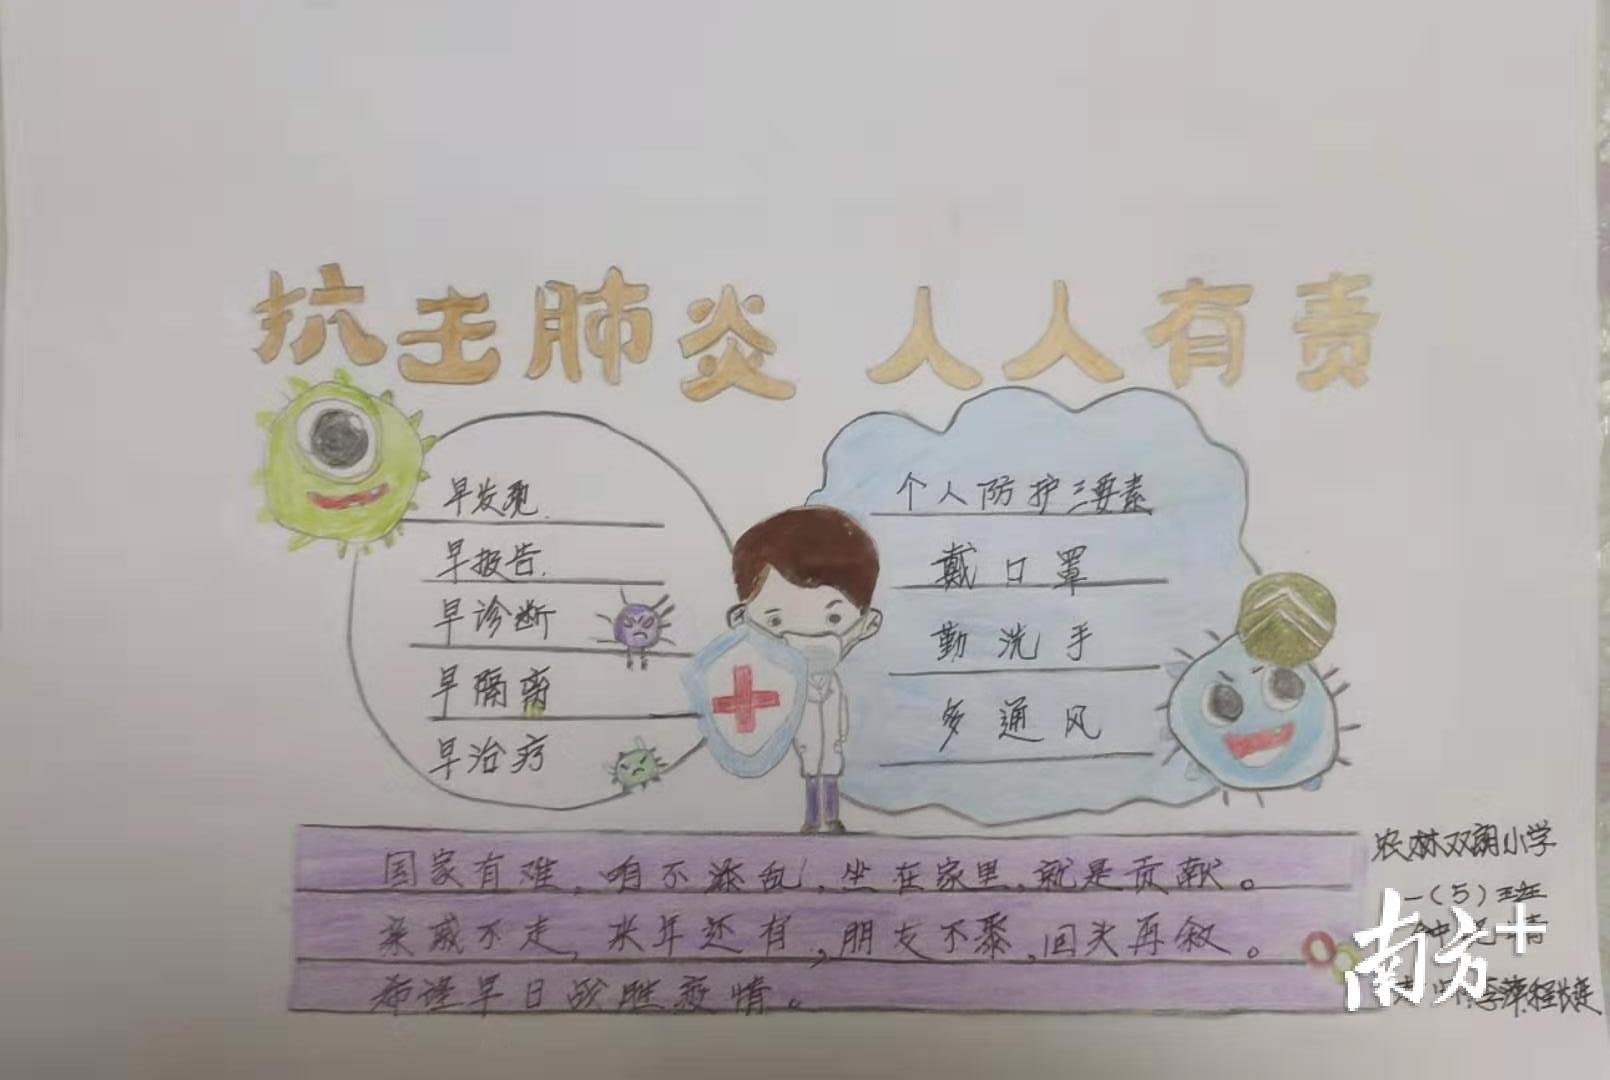 抗击肺炎 人人有责
早发现.
早报告.
早诊断
早隔离
早治疗
个人防护三要素
戴口罩
勤洗手
多通风
国家有难,咱不添乱,坐在家里,就是贡献。
亲戚不走,来年还有,朋友不聚,回头再叙。
希望早日战胜疫情。
农林双朗小学
一(5)班
钟 晴
南方+